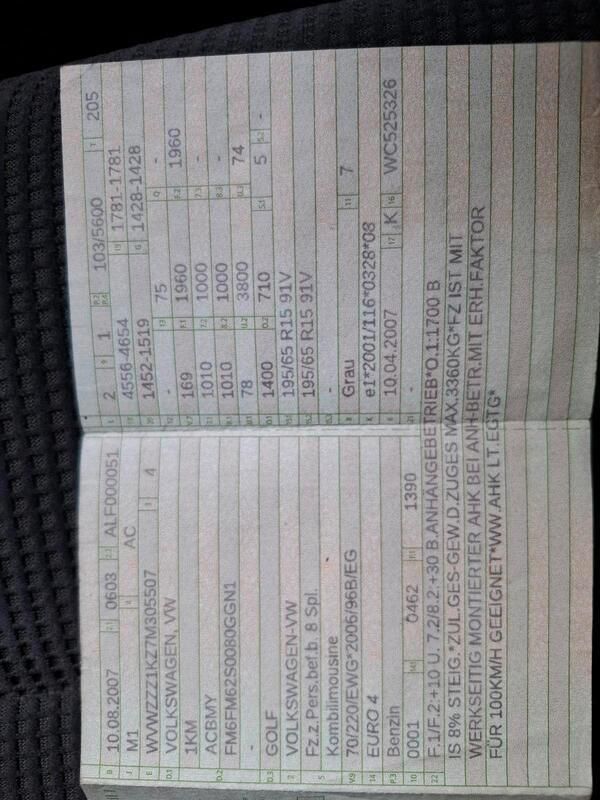 B 10.08.2007 2.1 0603 2.2 ALF000051
J M1 4 AC
E WVWZZZ1KZ7M305507 3 4
D.1 VOLKSWAGEN, VW
1KM
D.2 ACBMY
FM6FM62S0080GGN1
-
D.3 GOLF
2 VOLKSWAGEN-VW
5 Fz.z.Pers.bef.b. 8 Spl.
Kombilimousine
V.9 70/220/EWG*2006/96B/EG
14 EURO 4
P.3 Benzin
10 0001 14.1 0462 P.1 1390
L 2 9 1 P.2 P.4 103/5600 T 205
18 4556-4654 19 1781-1781
20 1452-1519 G 1428-1428
12 - 13 75 Q -
V.7 169 F.1 1960 F.2 1960
7.1 1010 7.2 1000 7.3 -
8.1 1010 8.2 1000 8.3 -
U.1 78 U.2 3800 U.3 74
O.1 1400 O.2 710 S.1 5 S.2 -
15.1 195/65 R15 91V
15.2 195/65 R15 91V
15.3 -
R Grau 11 7
K e1*2001/116*0328*08
6 10.04.2007 17 K 16 WC525326
21 -
22 F.1/F.2:+10 U. 7.2/8.2:+30 B.ANHÄNGEBETRIEB*O.1:1700 B
IS 8% STEIG.*ZUL.GES-GEW.D.ZUGES MAX.3360KG*FZ IST MIT
WERKSEITIG MONTIERTER AHK BEI ANH-BETR.MIT ERH.FAKTOR
FÜR 100KM/H GEEIGNET*WW.AHK LT.EGTG*